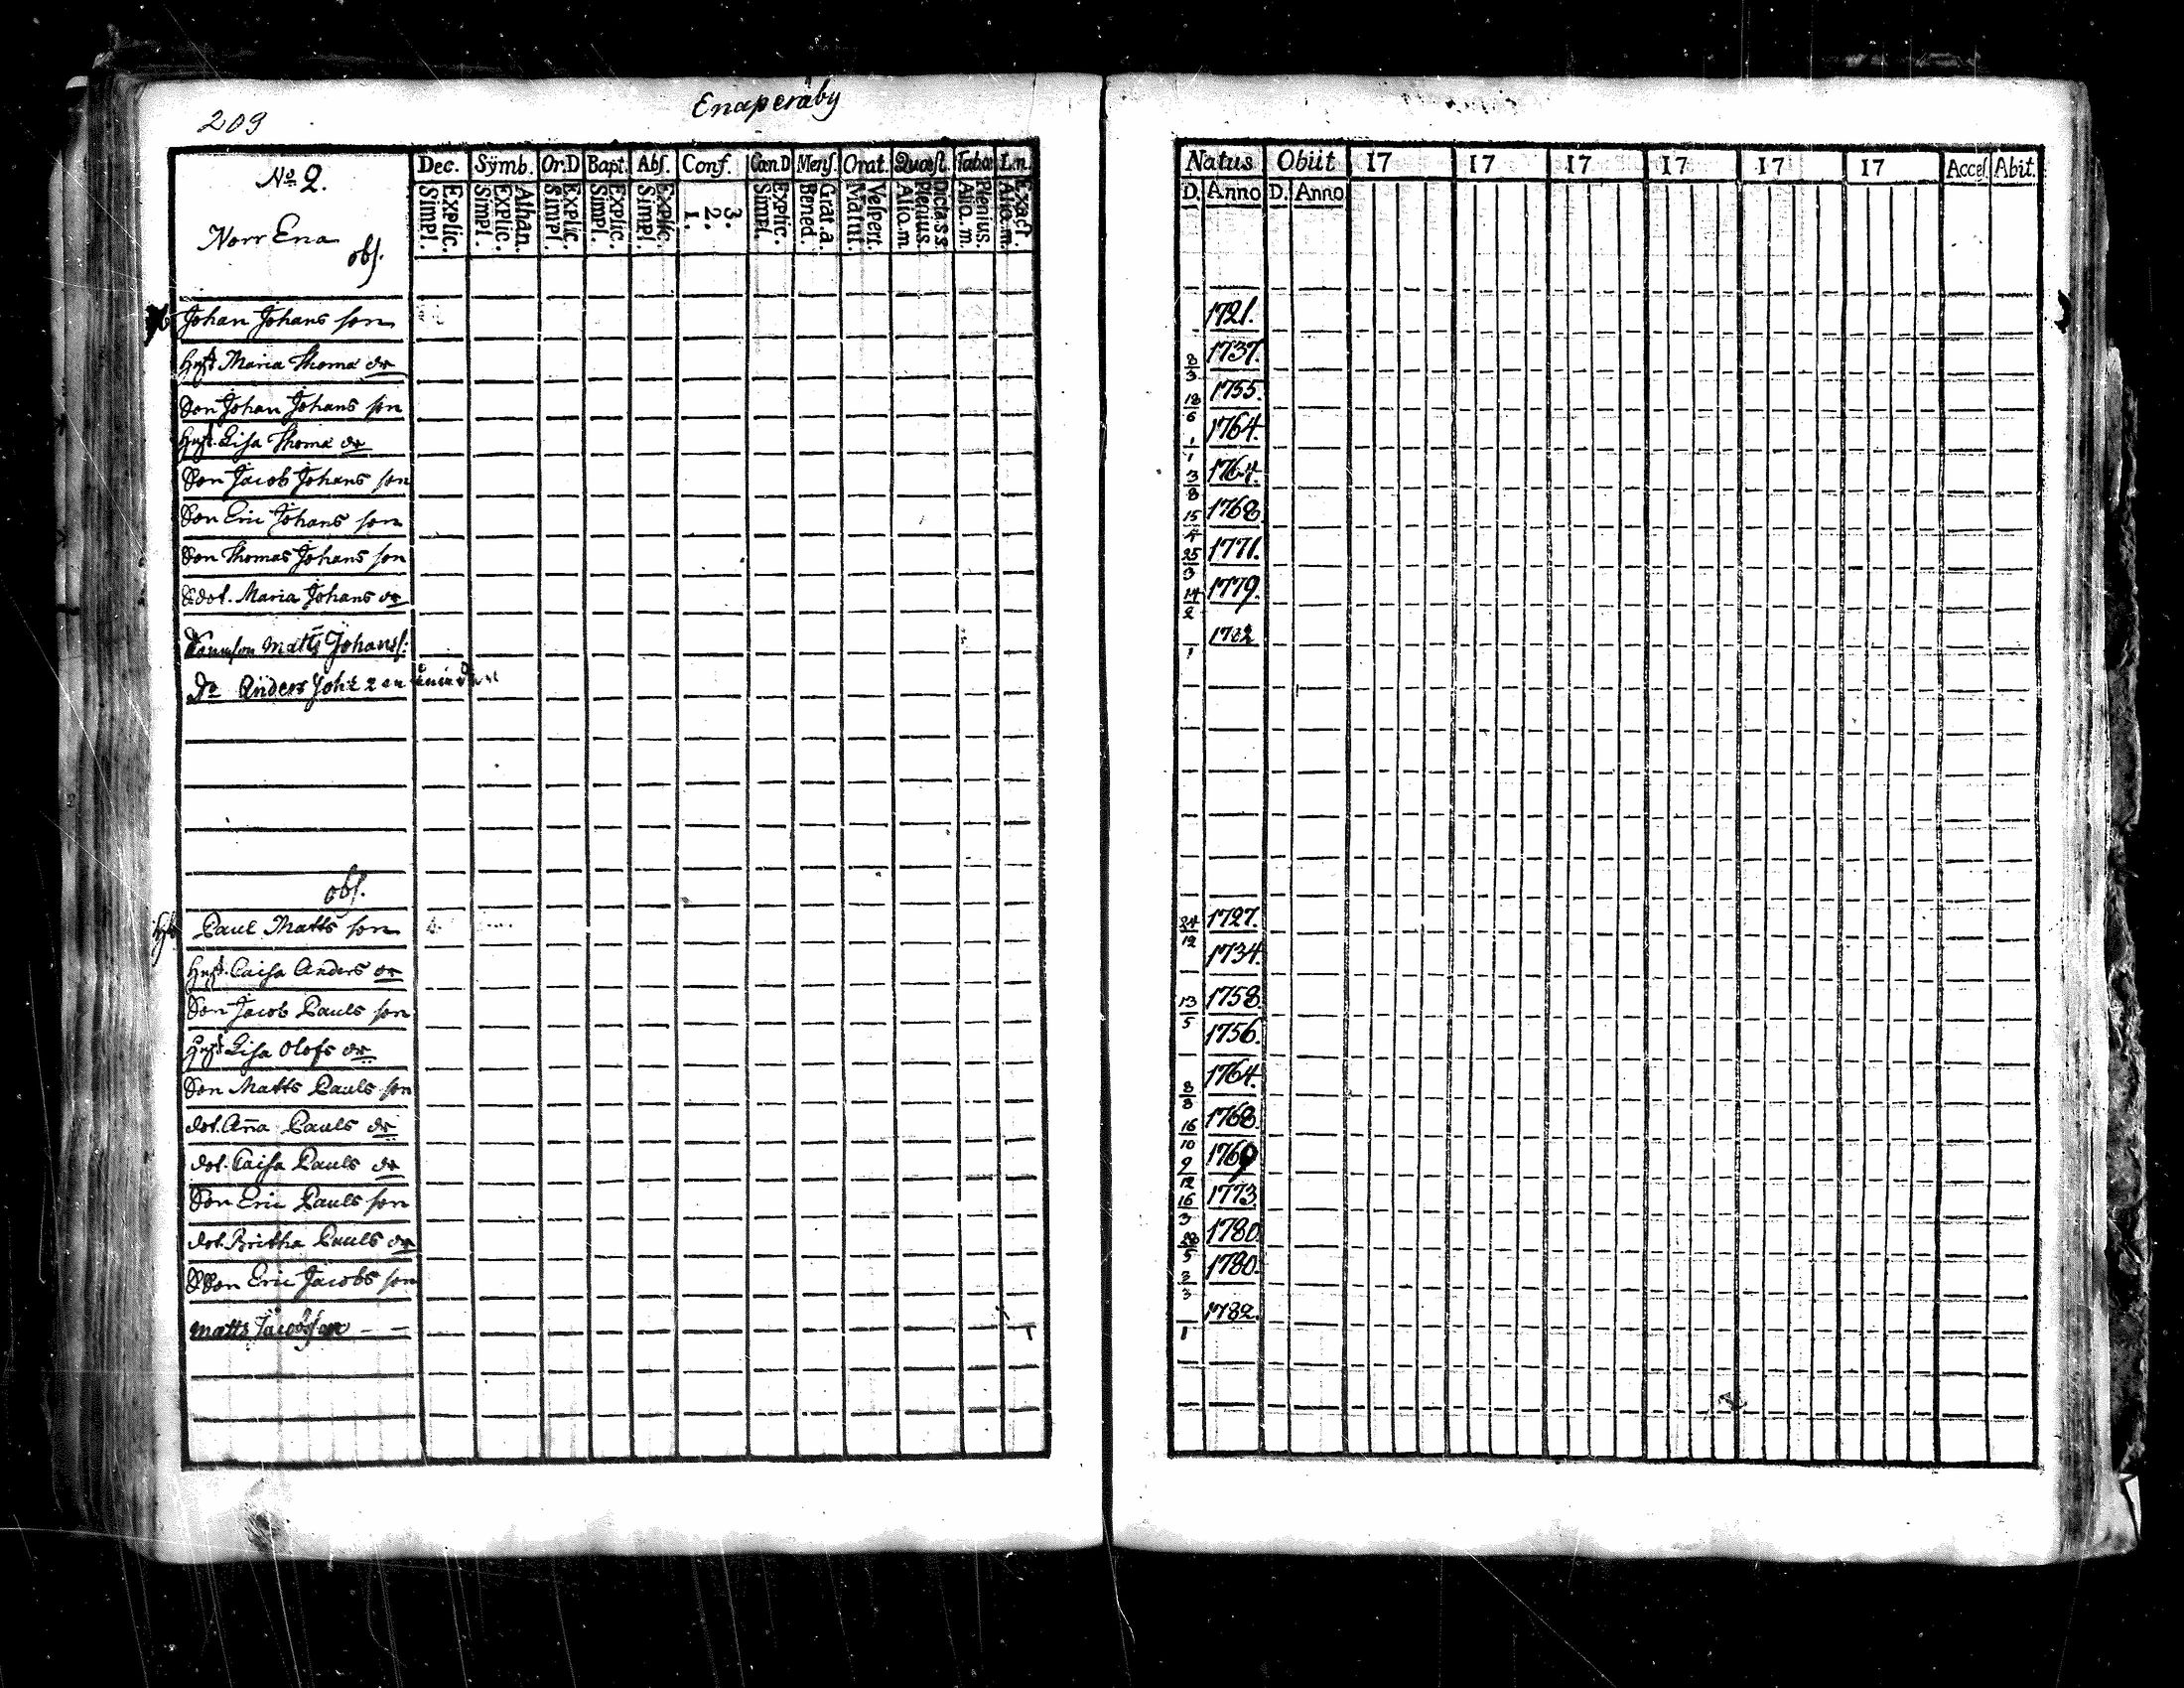 209
Enaperäby
No 2.
Norr Ena
obs.
Dec. Symb. Or.D Bapt. Abs. Conf. Cœn.D Mens. Orat. Quæst. Tabœ
Simpl. Explic. Simpl. Explic. Athan. Simpl. Explic. Simpl. Explic. Simpl. Explic. 1. 2. 3. Simpl. Explic. Bened. Grat.a. Matut. Vespert. Alio.m Plenius. Dicta.s.s Alio.m. Plenius. Alio.m. Exact.
Natus Obiit 17 17 17 17 17 17 Acces. Abit.
D. Anno D. Anno
Johan Johans son 1721.
Hust. Maria Thoma dr 8/3 1737.
Son Johan Johans son 18/6 1755.
Hust. Lisa Thoma dr 1/1 1764.
Son Jacob Johans son 3/8 1764.
Son Eric Johans son 15/4 1768.
Son Thomas Johans son 25/3 1771.
Sdot. Maria Johans dr 14/2 1779.
Matts Johans s:
Do Anders Joh
obs.
Paul Matts son 24/12 1727.
Hust. Caisa Anders dr 1734.
Son Jacob Pauls son 13/5 1758.
Hust. Lisa Olofs dr 1756.
Son Matts Pauls son 8/8 1764.
dot. Aña Pauls dr 16/10 1768.
dot. Caisa Pauls dr 9/12 1769
Son Eric Pauls son 16/3 1773.
dot. Britha Pauls dr 28/5 1780.
SSon Eric Jacobs son 3/3 1780.
Matts Jacobsson – – 1 1782.